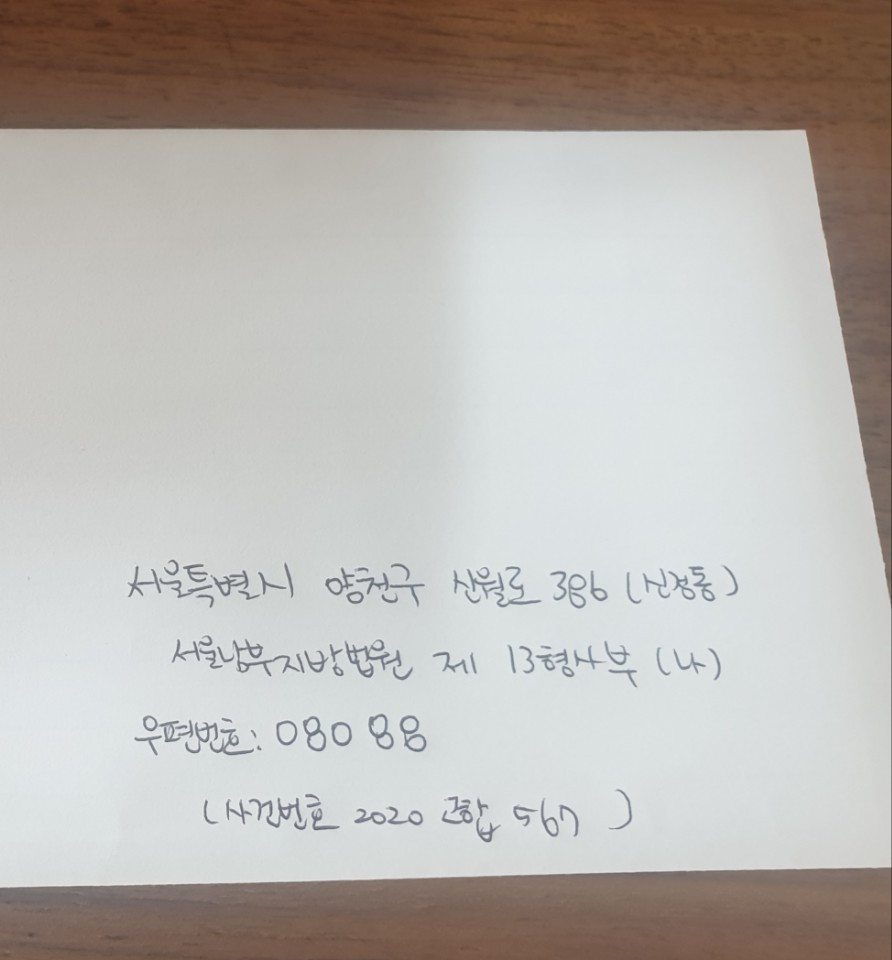 서울특별시 양천구 신월로 386 (신정동)
서울남부지방법원 제 13형사부 (나)
우편번호: 08088
(사건번호 2020 고합 567)